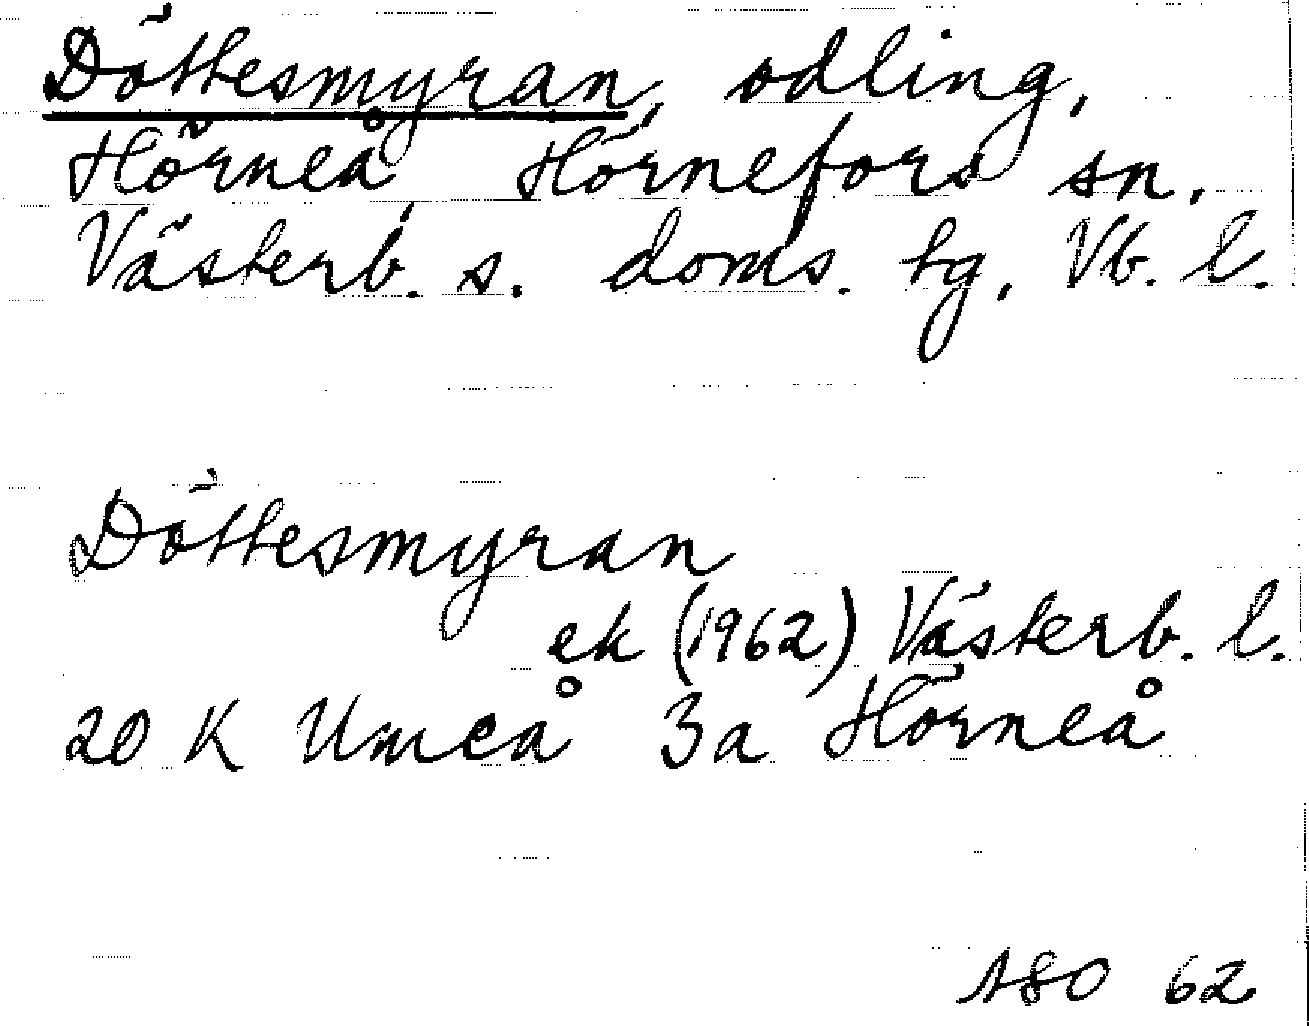 Döttesmyran, odling,
Hörneå, Hörnefors sn,
Västerb. s. doms. tg, Vb. l.
Döttesmyran
ek (1962) Västerb. l.
20 K Umeå 3a Hörneå
ASO 62